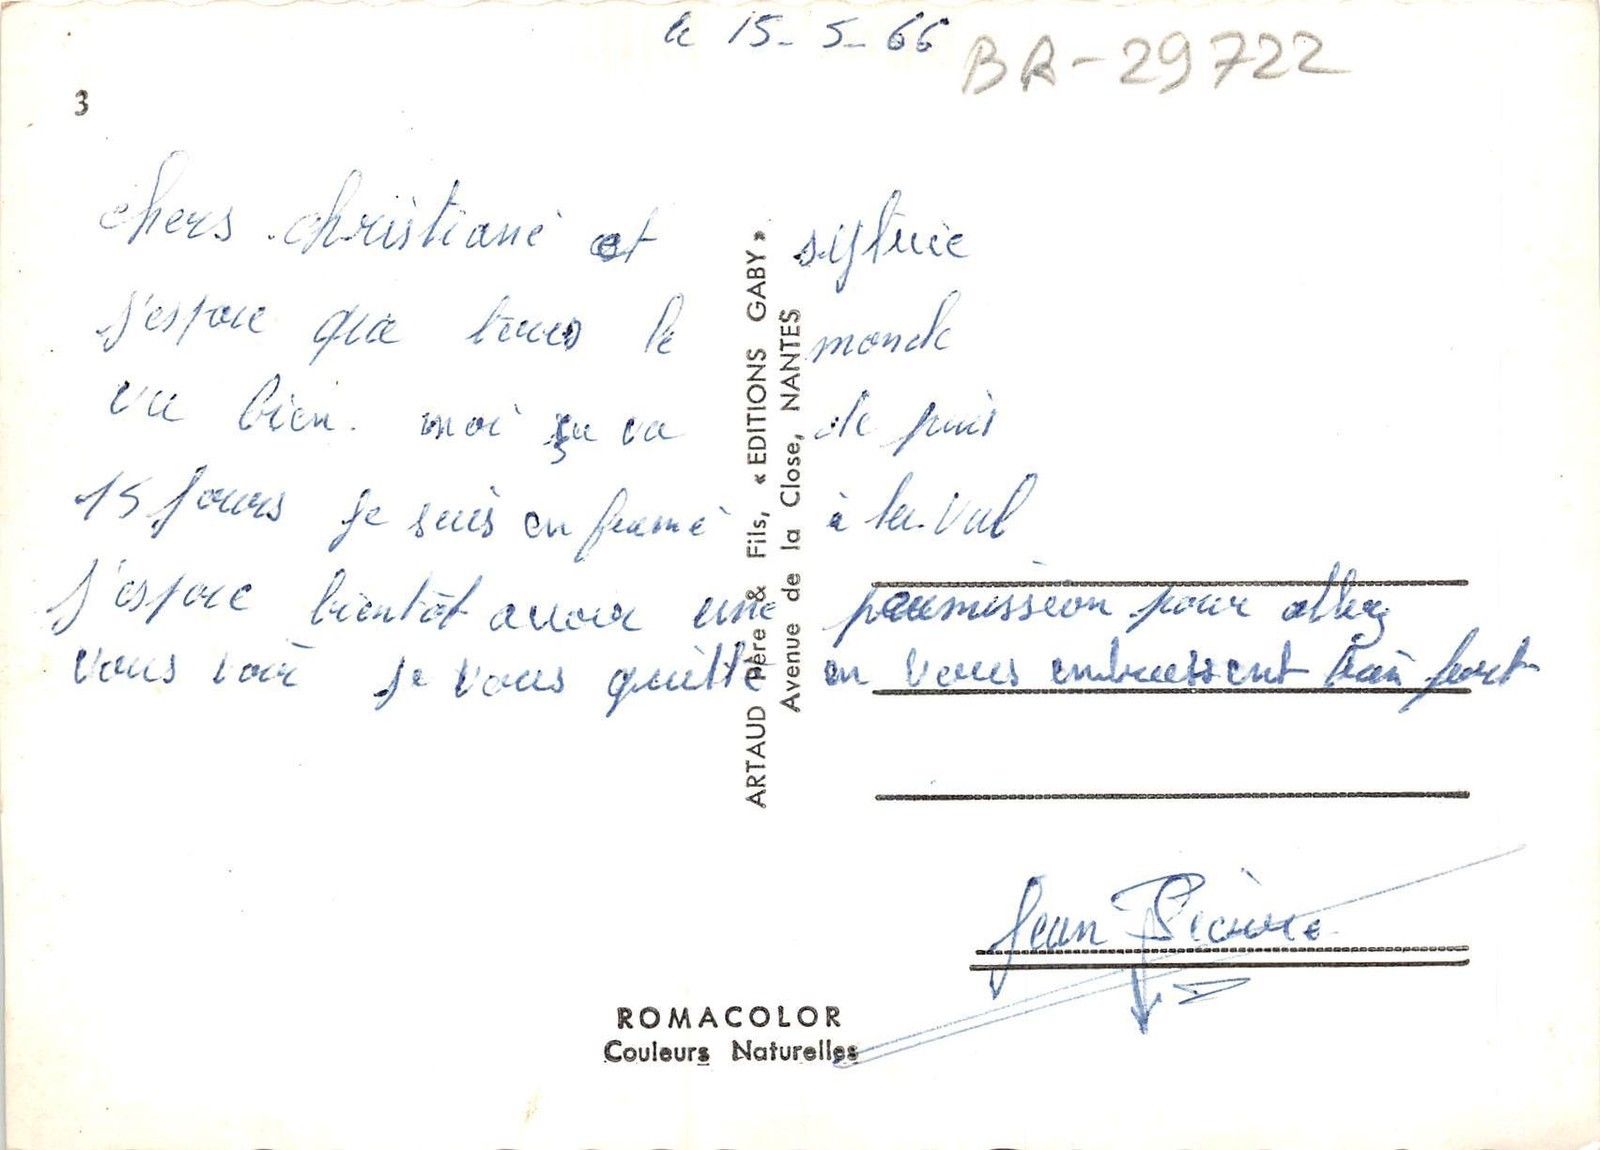 le 15-5-66
BR-29722
3
chers christiane et sylvie
j'espore que tous le monde
va bien. moi ça va de puis
15 jours je suis enfermé à la val
j'espore bientôt avoir une paumission pour allez
vous voir je vous quitte en vous embrassent très fort
ARTAUD Père & Fils, « EDITIONS GABY »
Avenue de la Close, NANTES
Jean Pierre
ROMACOLOR
Couleurs Naturelles